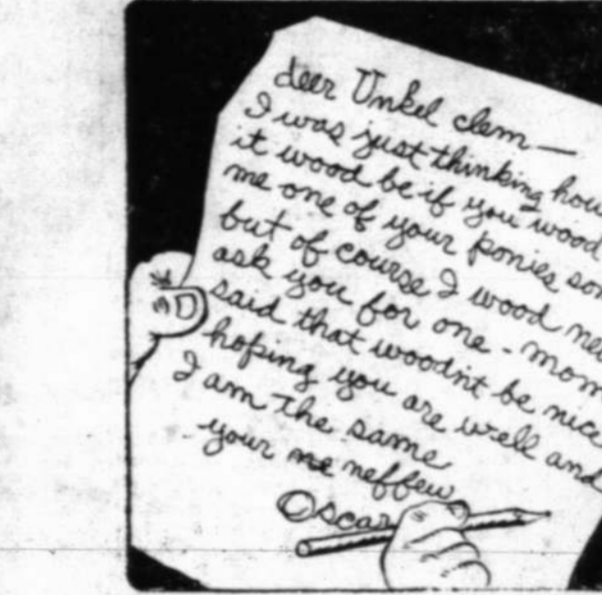 deer Unkel clem —
I was just thinking how
it wood be if you wood
me one of your ponies som
but of course I wood nev
ask you for one - mom
said that woodn't be nice
hoping you are well and
I am the same
- your ne neffew
Oscar